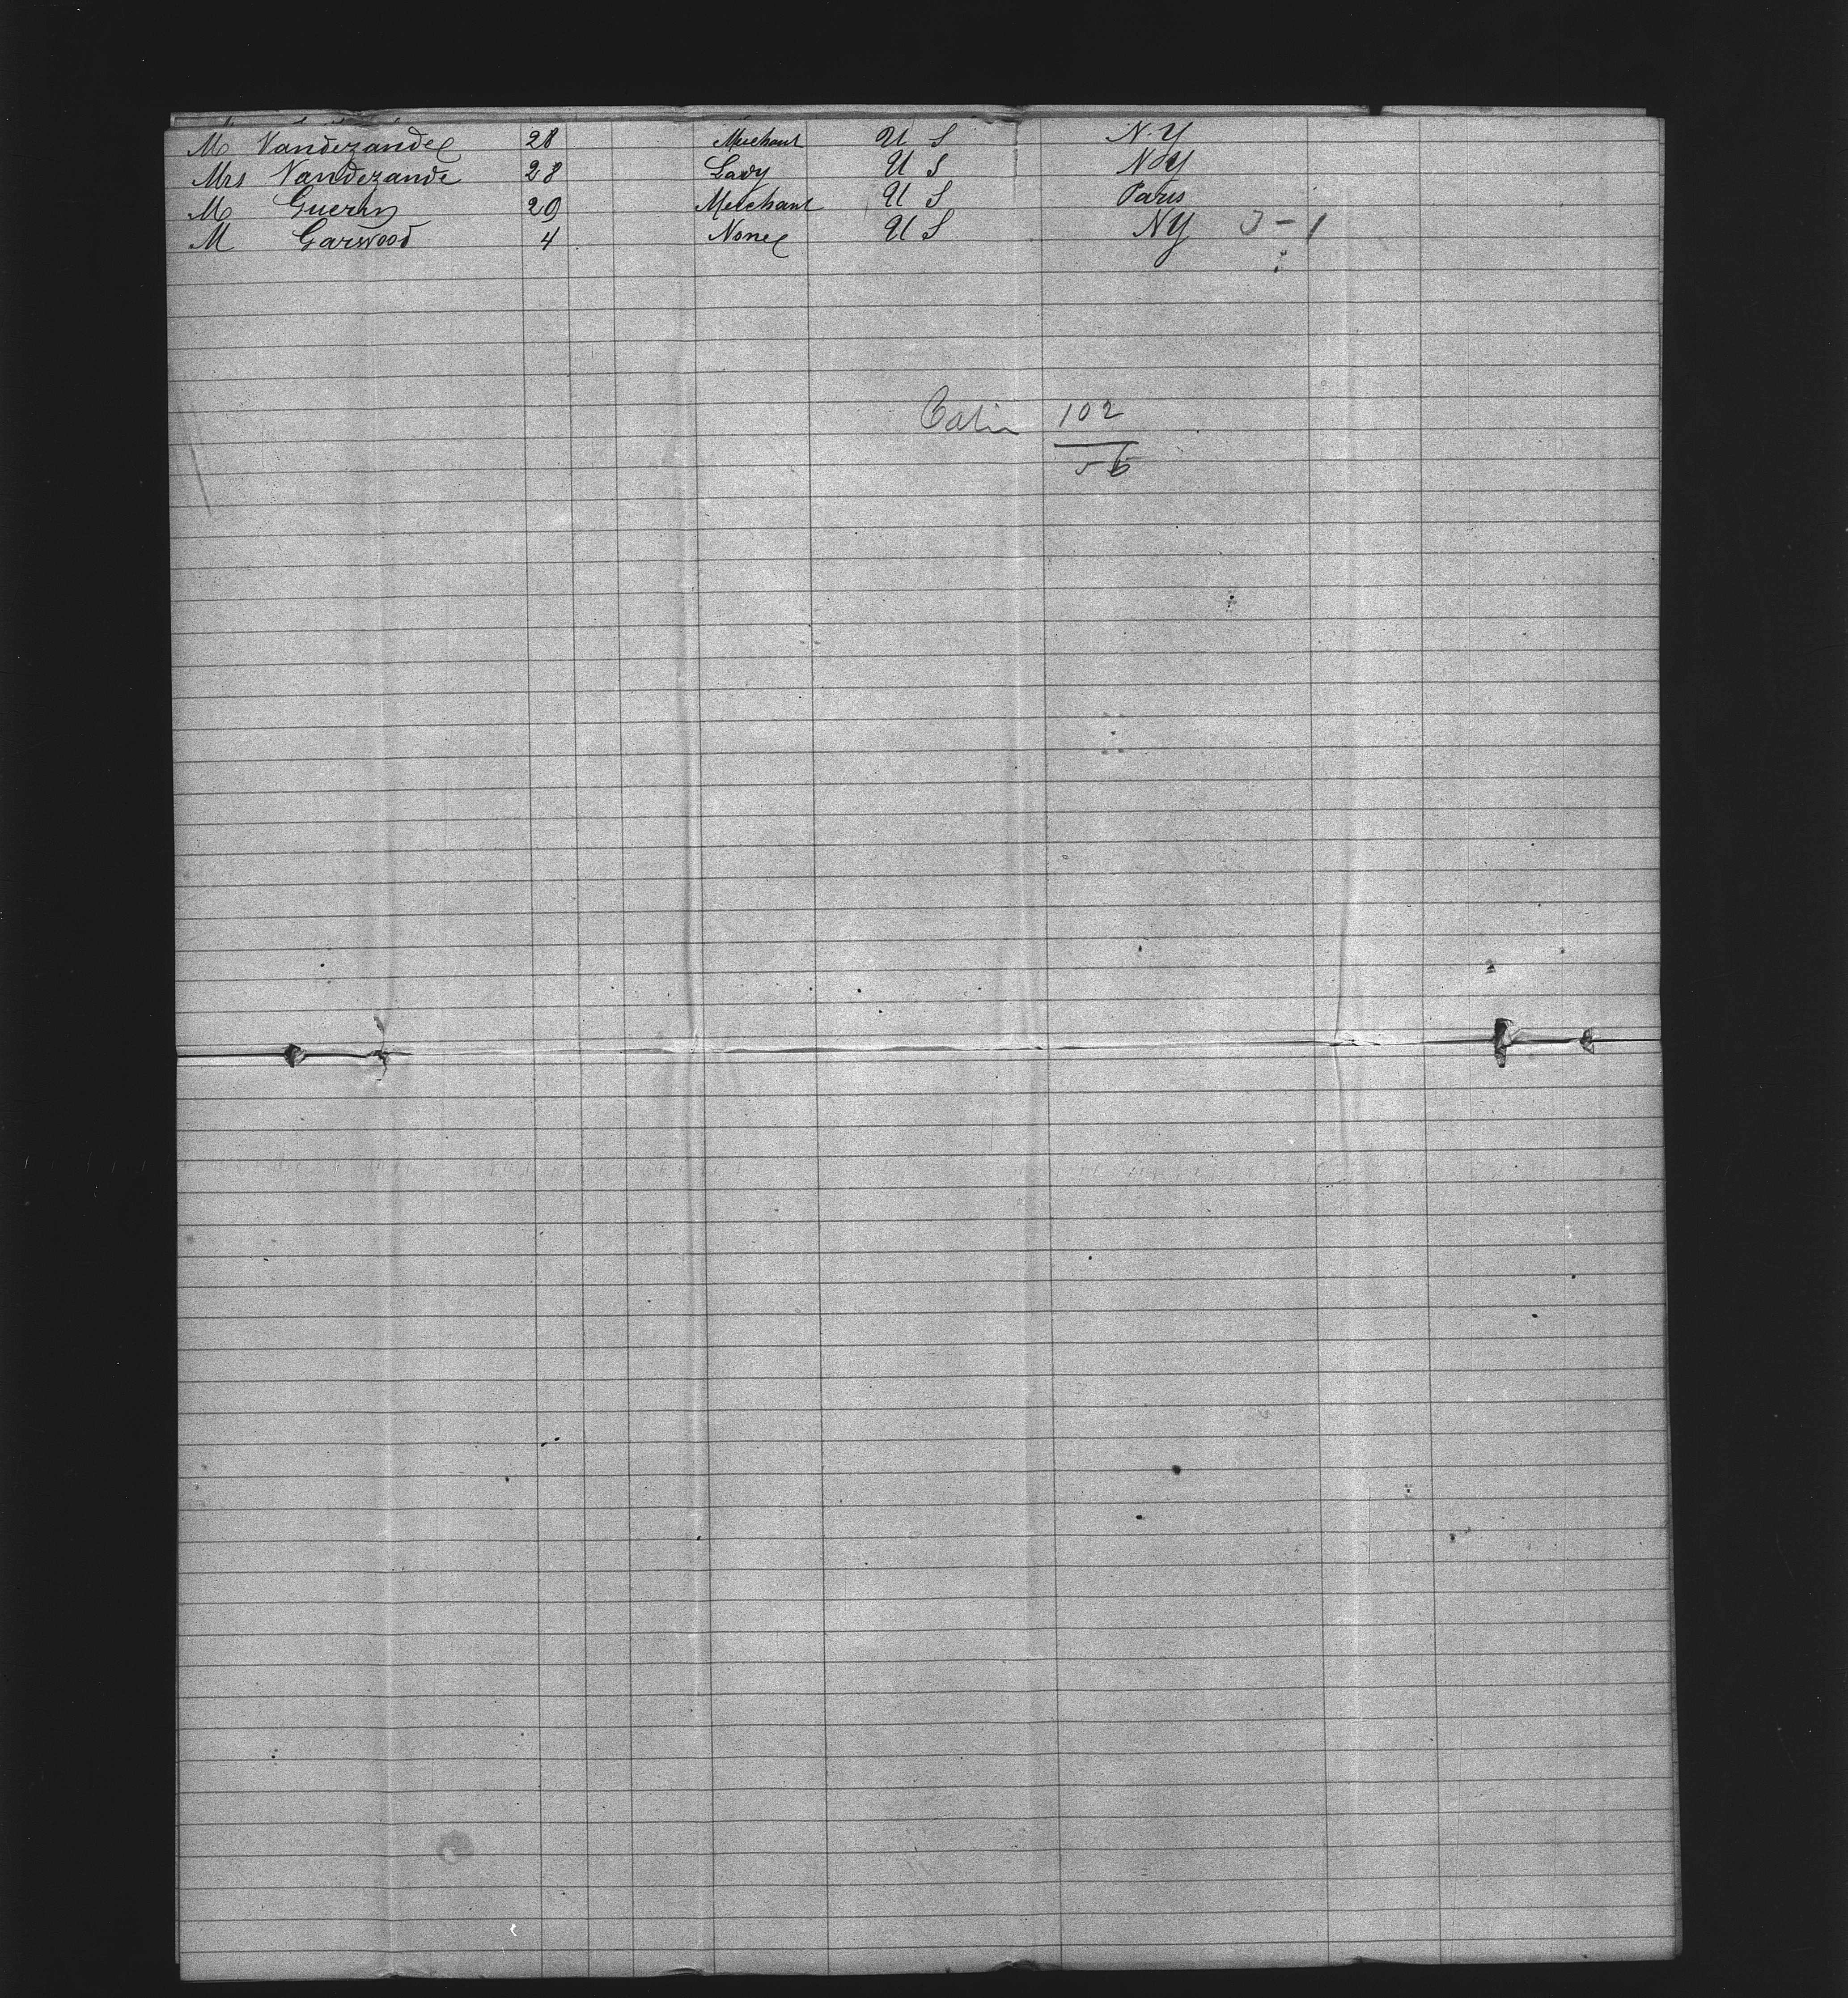 M Vandezande 28 Merchant U S N.Y
Mrs Vandezande 28 Lady U S N Y
M Guerin 29 Merchant U S Paris
M Garwood 4 None U S NY
Cabin 102